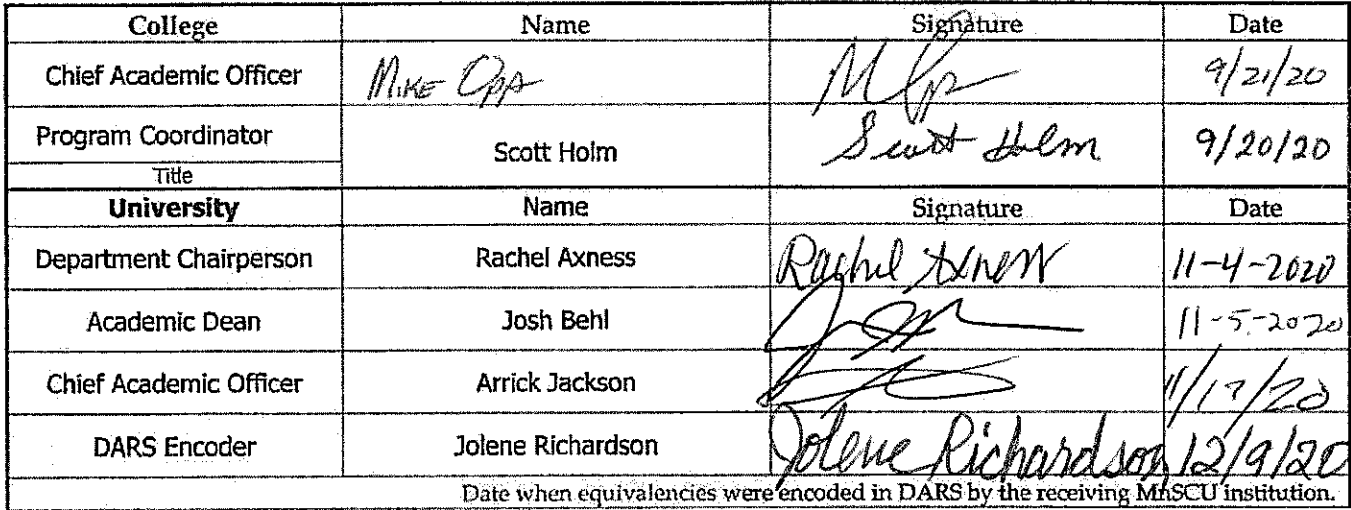 College Name Signature Date
Chief Academic Officer Mike Opp 9/21/20
Program Coordinator
Title
Scott Holm Scott Holm 9/20/20
University Name Signature Date
Department Chairperson Rachel Axness Rachel Axness 11-4-2020
Academic Dean Josh Behl 11-5-2020
Chief Academic Officer Arrick Jackson 11/17/20
DARS Encoder Jolene Richardson Jolene Richardson 12/9/20
Date when equivalencies were encoded in DARS by the receiving MnSCU institution.